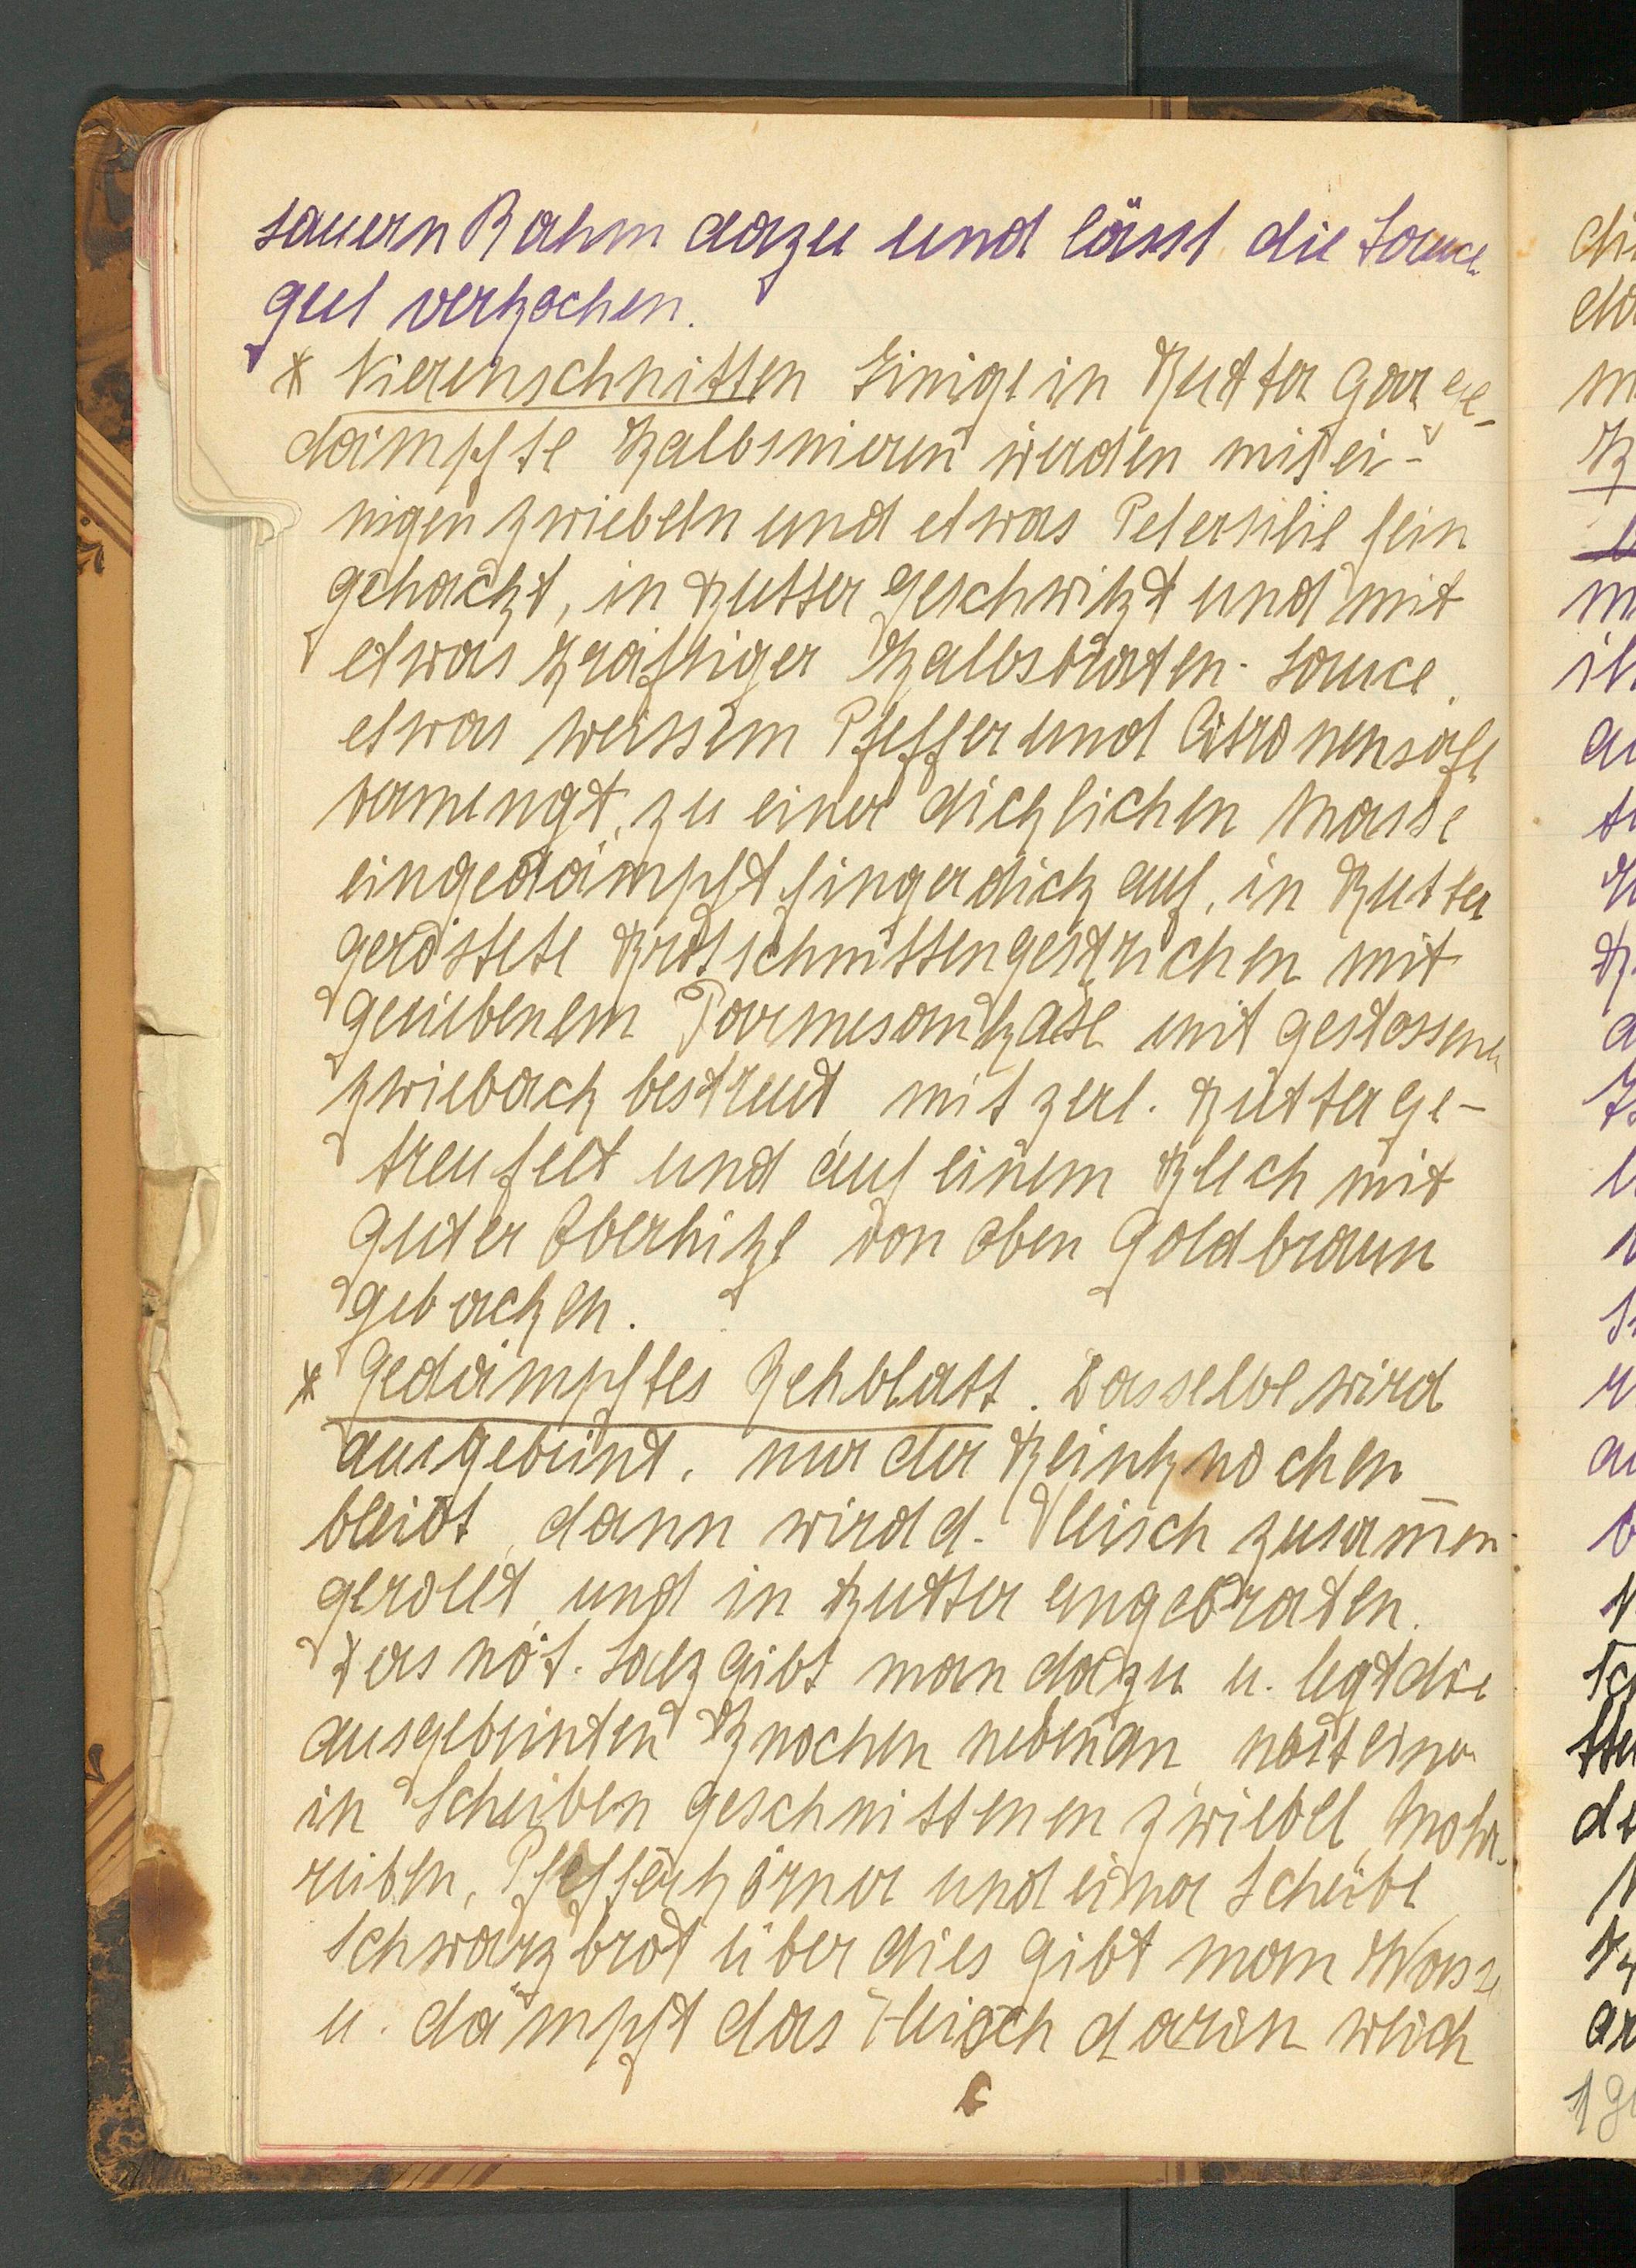 sauern Rahm dazu und lässt die Sauce
gut verkochen.
* Nierenschnitten Einige in Butter gar ge-
dämpfte Kalbsnieren werden mit ei-
nigen Zwiebeln und etwas Petersilie fein
gehackt, in Butter geschwitzt und mit
etwas kräftiger Kalbsbraten-Sauce,
etwas weissem Pfeffer und Citronensaft
vermengt, zu einer dicklichen Masse
eingedämpft fingerdick auf, in Butter
geröstete Brotschnitten gestrichen mit
geriebenem Parmesankäse mit gestossenem
Zwieback bestreut, mit zerl. Butter ge-
treufelt und auf einem Blech mit
guter Oberhitze von oben goldbraun
gebacken.
* Gedämpftes Rehblatt. Dasselbe wird
ausgebeint, nur der Beinknochen
bleibt, dann wird d. Fleisch zusam̅en-
gerollt, und in Butter angebraten.
Das nöt. Salz gibt man dazu u. legt die
ausgebeinten Knochen nebenan nebst einer
in Scheiben geschnittenen Zwiebel, Mohr-
rüben, Pfefferkörner und einer Scheibe
Schwarzbrot über dies gibt man Wasser
u. dämpft das Fleisch darin weich